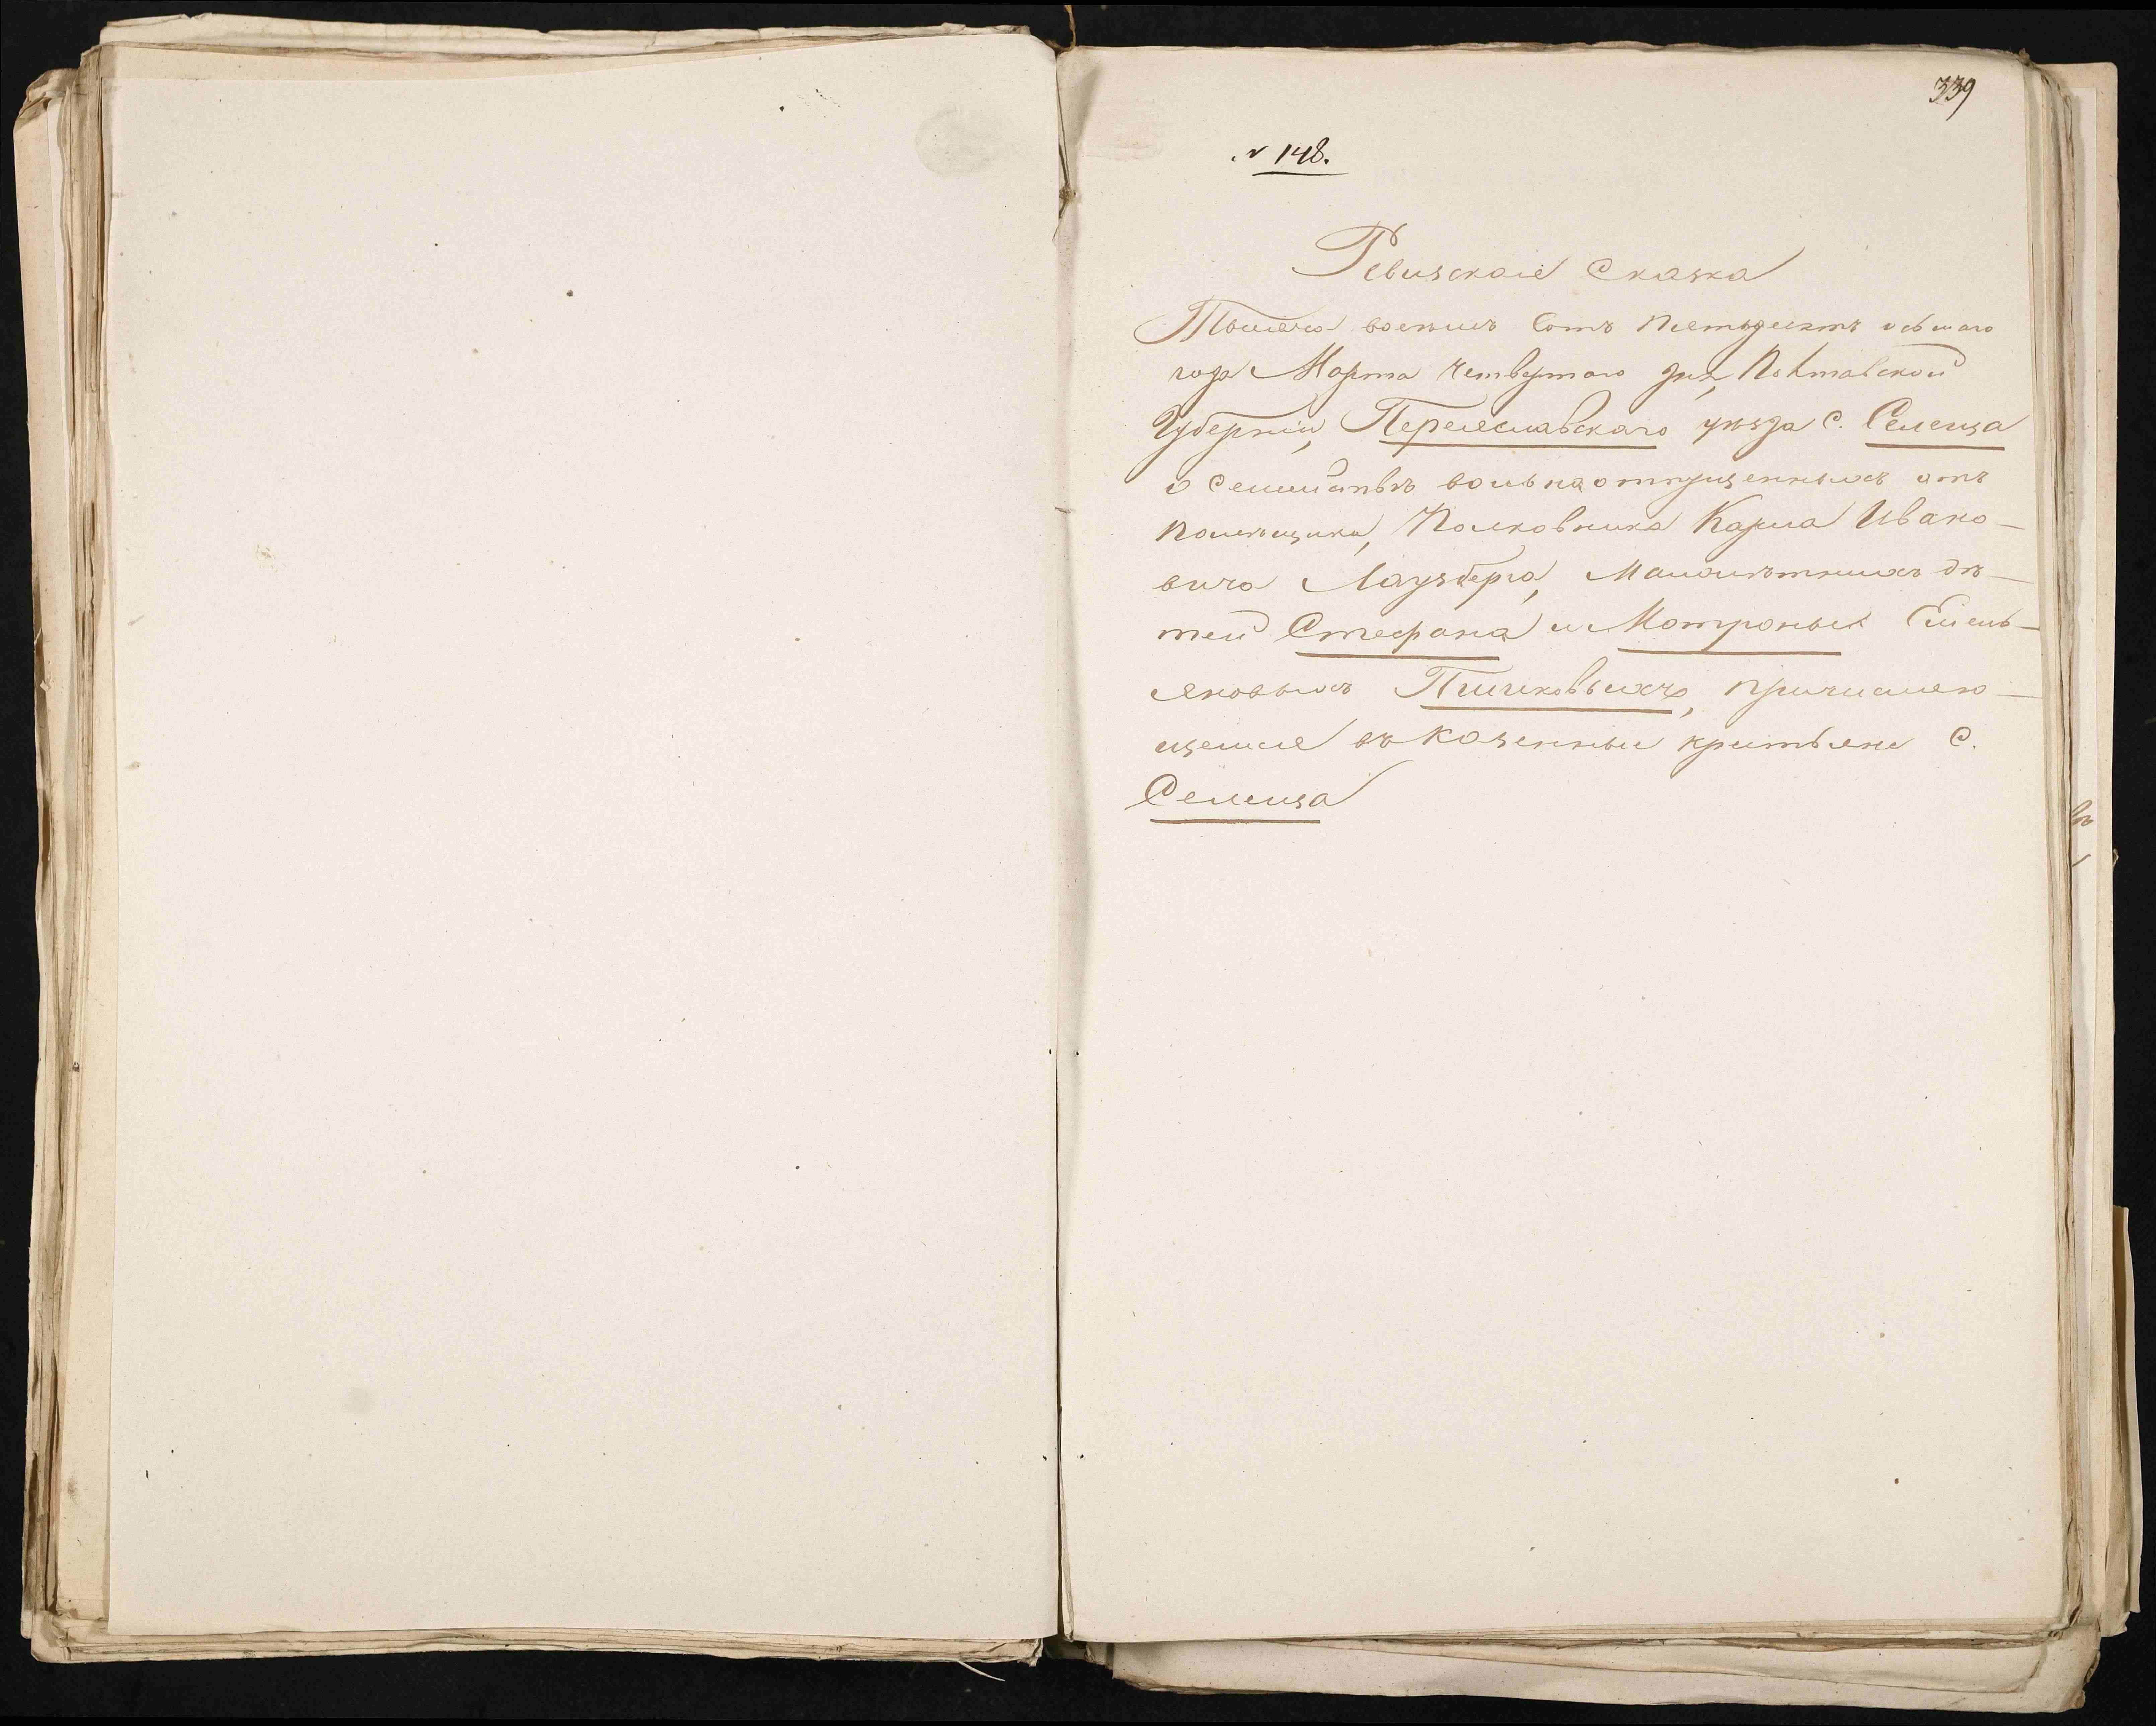 339
№ 148.
Ревизская Сказка
Тысяча восемь Сотъ Пятьдесятъ осьмаго
года Марта Четвертаго дня, Полтавской
Губерніи, Переяславскаго уѣзда С. Селеца
о Семействѣ вольноотпущенныхъ отъ
Помѣщика, Полковника Карла Ивано-
вича Лаузберга, Малолѣтнихъ дѣ-
тей Стефана и Мотроны Емель-
яновыхъ Пичиковыхъ, причисляю-
щемся въ Казенные крестьяне С.
Селеца